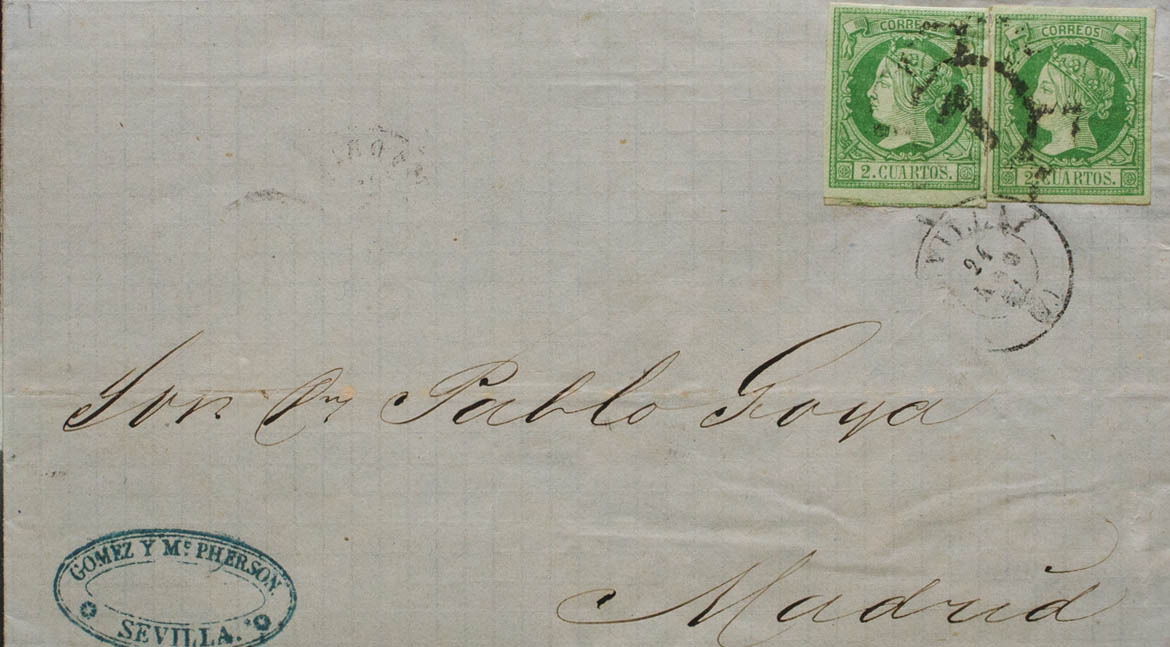 CORREOS
2. CUARTOS.
CORREOS
2. CUARTOS.
24
Sor Dn Pablo Goya
Madrid
GOMEZ Y Mc PHERSON.
SEVILLA.